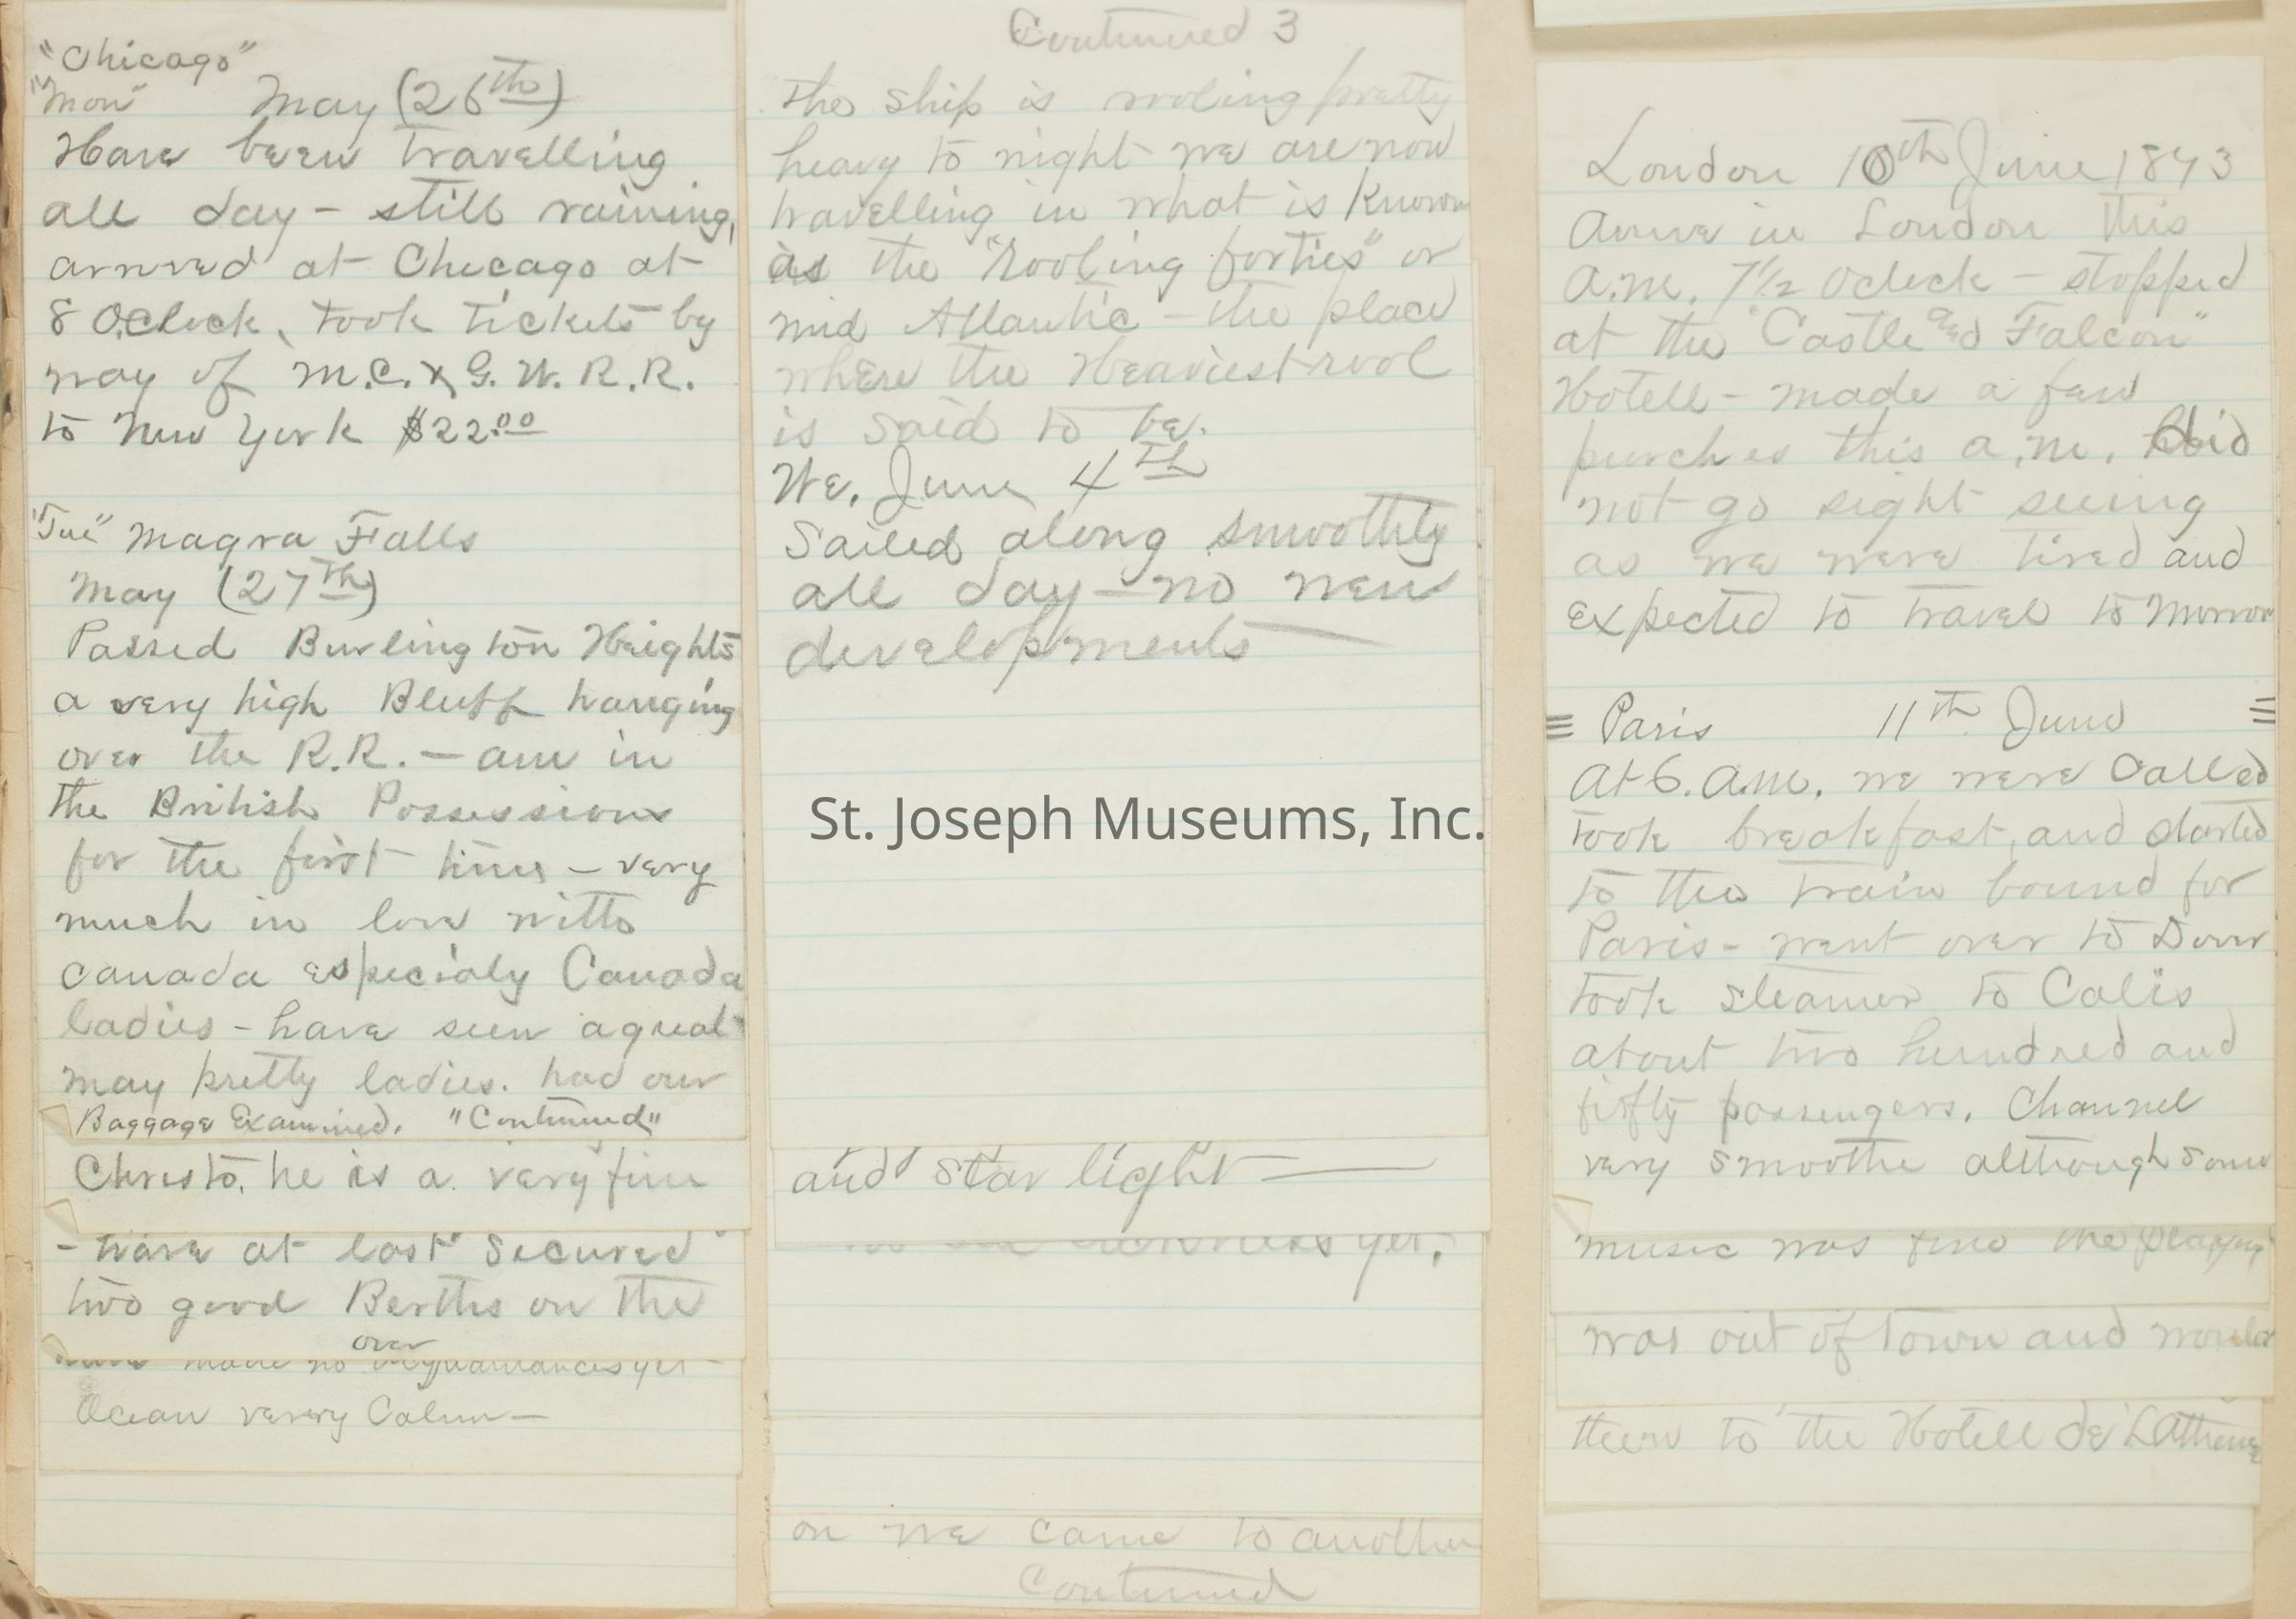 "Chicago"
"Mon" May (26th)
Have been travelling
all day - still raining,
arrived at Chicago at
8 OClock, took tickets by
way of M.C. & G. W. R. R.
to New York $22.00
"Tue" Niagra Falls
May (27th)
Passed Burlington Heights
a very high Bluff hanging
over the R.R. - am in
the British Possessions
for the first time - very
much in love with
canada especialy Canada
ladies - have seen a great
may pretty ladies. had our
Baggage Examined. "Continued"
Christo. he is a very fine
- have at last secured
two good Berths on the
over
made no acquaintances yet -
Ocean verery Calm -
Continued 3
the ship is rooling pretty
heavy to night we are now
travelling in what is known
as the "rooling forties" or
mid Atlantic - the place
where the Heaviest rool
is said to be.
We. June 4th
Sailed along smoothly
all day - no new
developments
St. Joseph Museums, Inc.
and star light
sickness yet.
on we came to another
Continued
London 10th June 1873
Arrive in London this
a.m. 7 1/2 Oclock - stopped
at the "Castle and Falcon"
Hotell - made a few
purches this a.m. did
not go sight seeing
as we were tired and
expected to travel to morrow
Paris 11th June
At 6. a.m. we were called
took breakfast, and started
to the train bound for
Paris - went over to Dover
took steamer to Calis
about two hundred and
fifty passengers. Channel
very smoothe although some
music was fine the playing
was out of town and would
them to the Hotell de Lathene